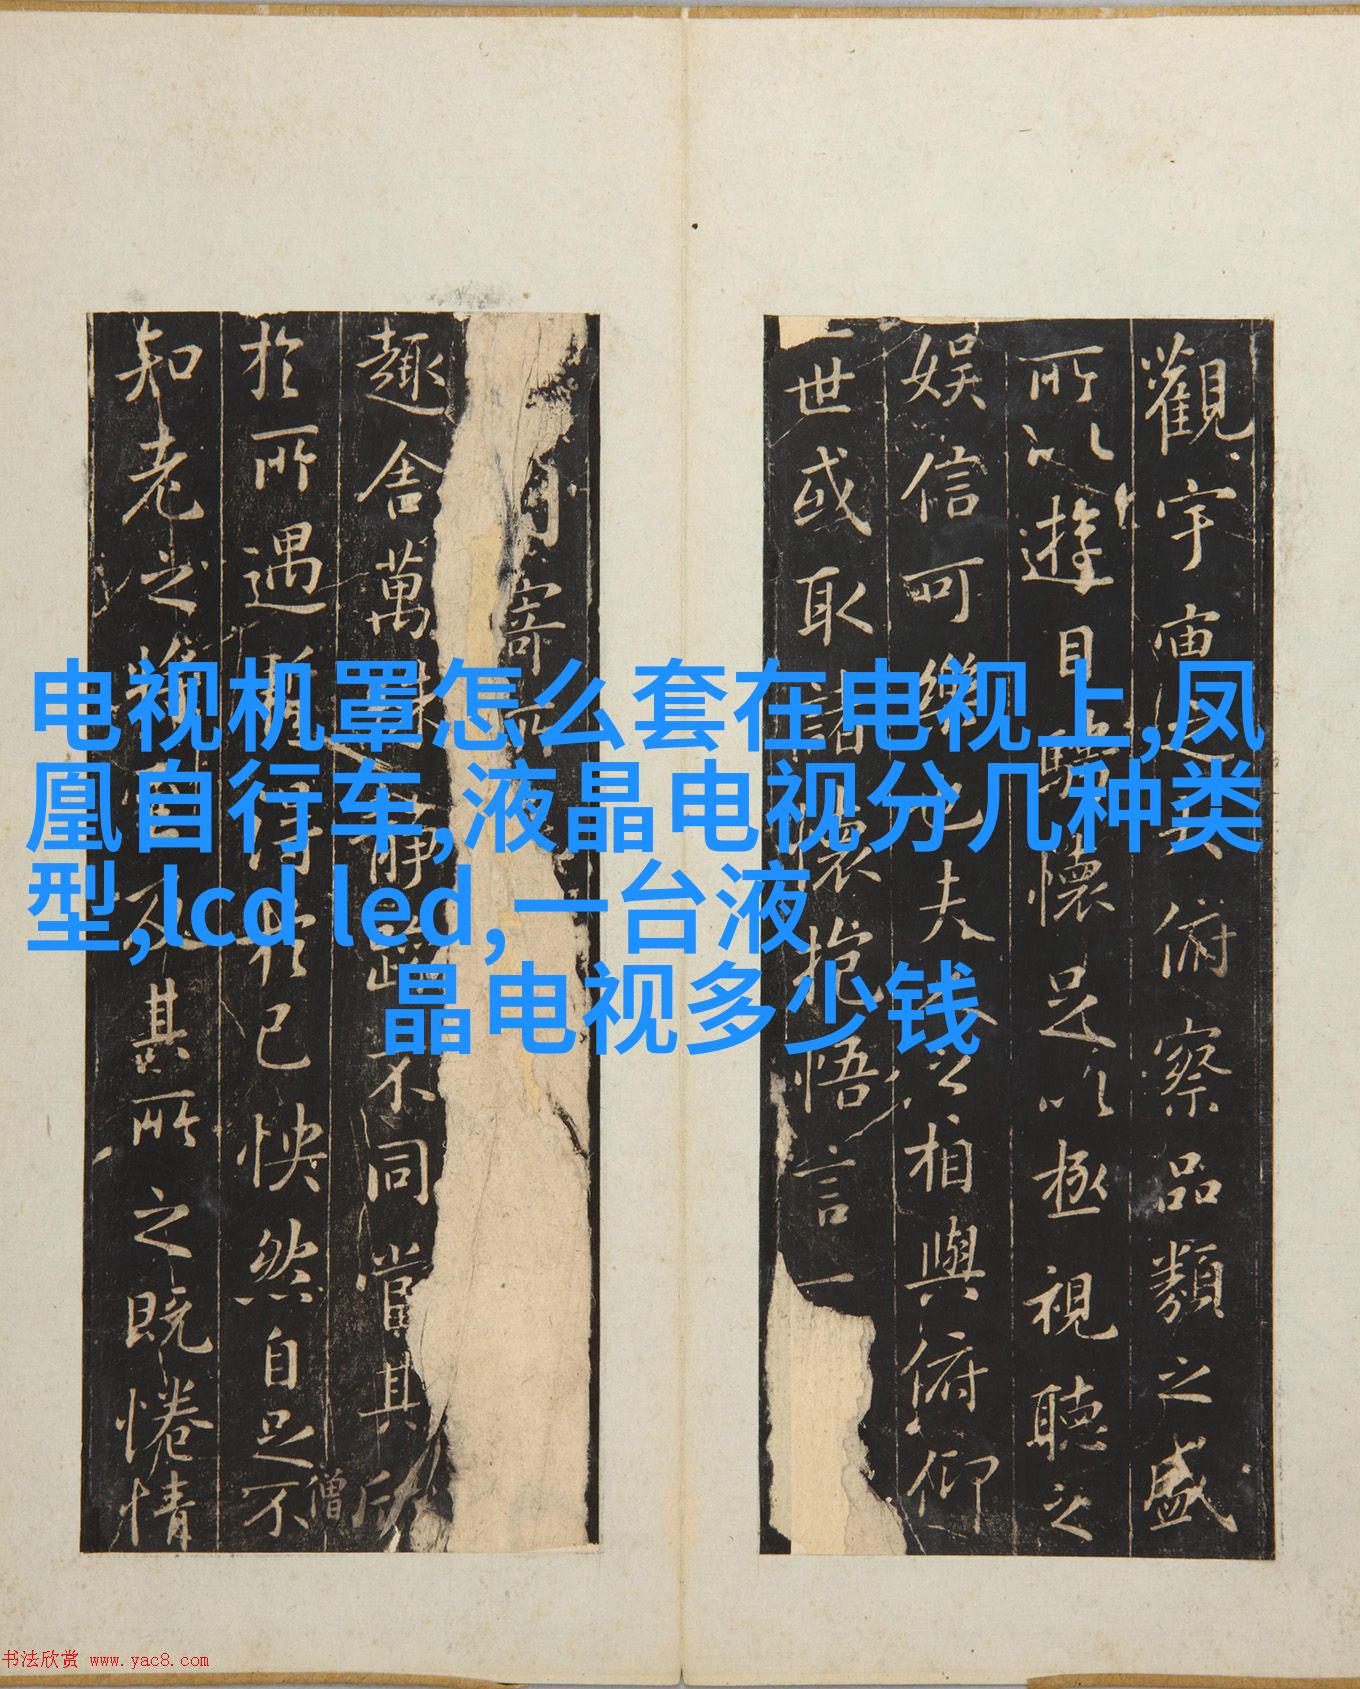 电视机罩怎么套在电视上,凤
凰自行车,液晶电视分几种类
型,lcd led,一台液
晶电视多少钱
觀宇宙俯察品類之盛
所以遊目騁懷足以極視聽之
娛信可樂也夫人之相與俯仰
一世或取諸懷抱悟言一
寄所
趣舍萬殊靜躁不同當其欣
僧
於所遇暫得於己怏然自足不
知老之將至及其所之既惓情
书法欣赏 www.yac8.com